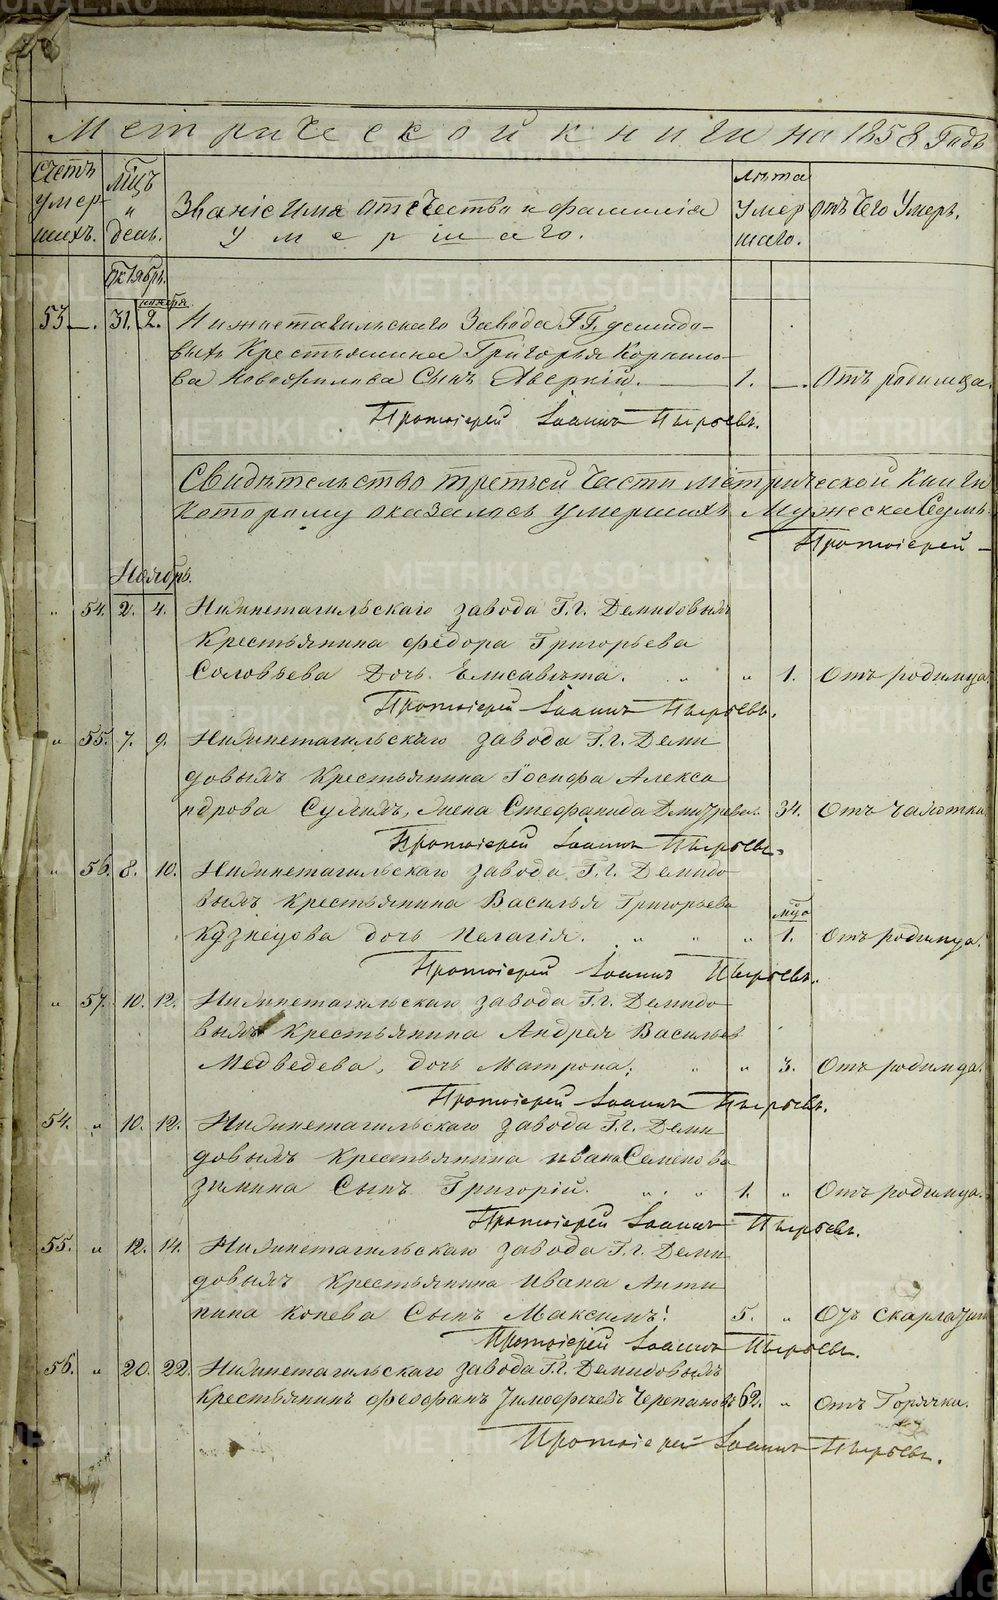 Метрической книги на 1858 Годъ
Счетъ умер-шихъ.
Мцъ и день.
Званіе имя отчество и фамилія умершаго.
Лѣта умер-шаго.
отъ чего умеръ.
Октябрь.
ноября
53 —. 31. 2. Нижнетагильскаго Завода ГГ. Демидо-
выхъ Крестьянина Григорья Корнило-
ва Новожилова Сынъ Аверкій. — 1. —. Отъ родимца.
Протоіерей Іоаннъ Пырьевъ.
Свидѣтельство третьей Части Метрической Книги
которому оказалось умершихъ Мужеска
Протоіерей —
Ноябрь.
„ 54. 2. 4. Нижнетагильскаго завода Г.г. Демидовыхъ
Крестьянина Федора Григорьева
Соловьева Дочь Елисавѣта. „ „ 1. Отъ родимца
Протоіерей Іоаннъ Пырьевъ.
„ 55. 7. 9. Нижнетагильскаго завода Г.г. Деми
довыхъ Крестьянина Іосифа Алекса
ндрова жена Стефанида Дмитрева. 34. Отъ чахотки
Протоіерей Іоаннъ Пырьевъ.
„ 56. 8. 10. Нижнетагильскаго завода Г.г. Демидо
выхъ Крестьянина Василья Григорьева
мца
Кузнецова дочь Пелагія. „ „ „ 1. Отъ родимца.
Протоіерей Іоаннъ Пырьевъ.
„ 57. 10. 12. Нижнетагильскаго завода Г.г. Демидо
выхъ Крестьянина Андрея Васильев
Медведева, дочь Матрона; „ „ 3. Отъ родимца.
Протоіерей Іоаннъ Пырьевъ.
54. „ 10. 12. Нижнетагильскаго завода Г.г. Деми
довыхъ Крестьянина Ивана Семенова
Зимина Сынъ Григорій. „ „ 1. „ Отъ родимца.
Протоіерей Іоаннъ Пырьевъ.
55. „ 12. 14. Нижнетагильскаго завода Г.г. Деми
довыхъ Крестьянина Ивана Анти
пина Копева Сынъ Максимъ. 5. „ Отъ скарлатин
Протоіерей Іоаннъ Пырьевъ.
56. „ 20. 22. Нижнетагильскаго завода Г.г. Демидовыхъ
Крестьянинъ Феофанъ Тимофеевъ Черепановъ 62. „ Отъ Горячки.
Протоіерей Іоаннъ Пырьевъ.
METRIKI.GASO-URAL.RU